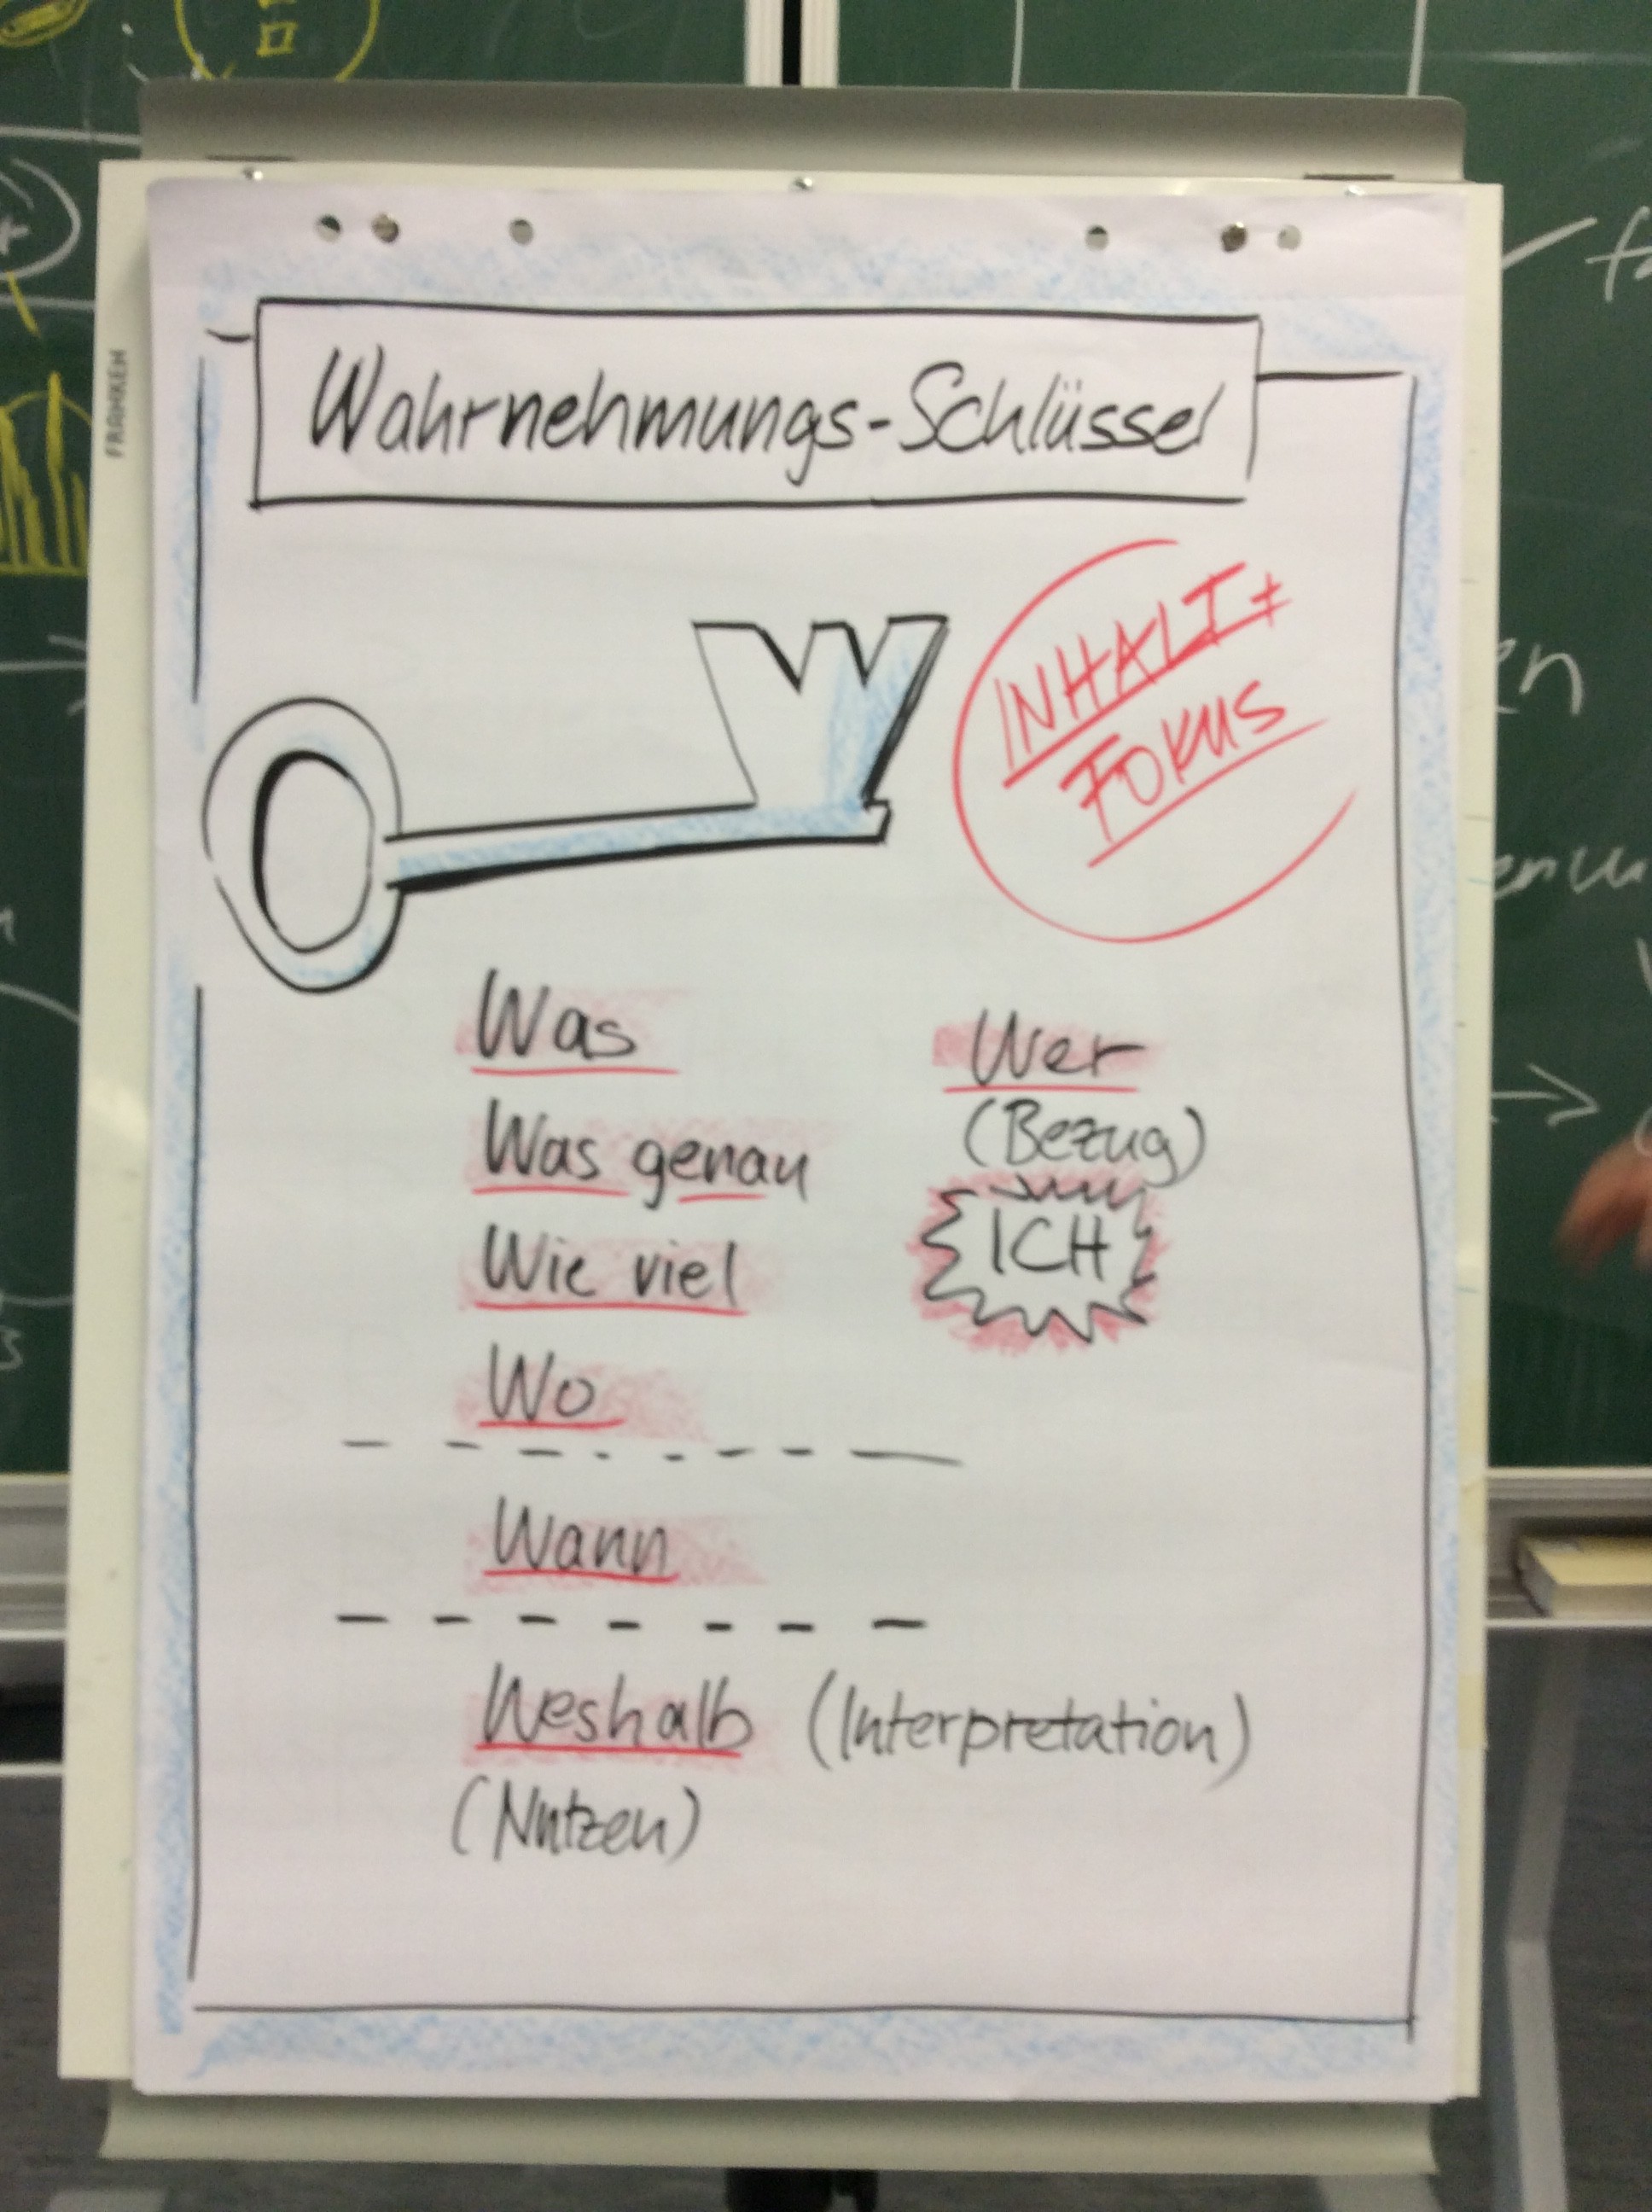 FRANKEN
Wahrnehmungs-Schlüssel
W
INHALT +
FOKUS
Was
Was genau
Wie viel
Wo
Wer
(Bezug)
ICH
Wann
Weshalb (Interpretation)
(Nutzen)